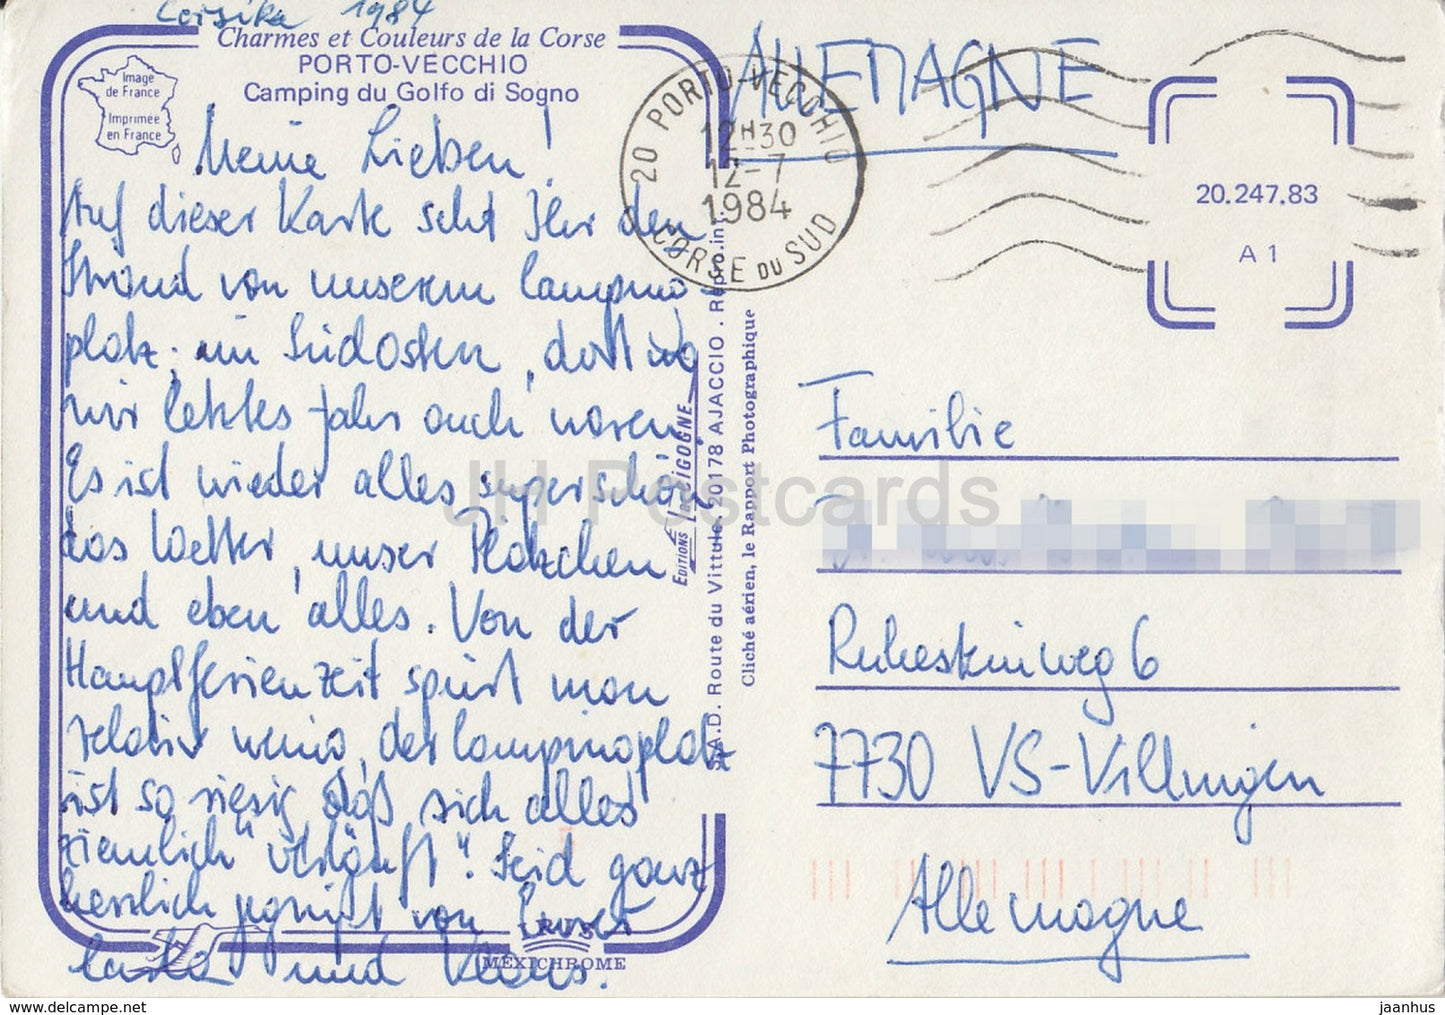 Corsika 1984
Charmes et Couleurs de la Corse
PORTO-VECCHIO
Camping du Golfo di Sogno
Image
de France
Imprimée
en France
Meine Lieben!
Auf dieser Karte seht Ihr den
Strand von unserem Camping-
platz, im Südosten, dort wo
wir letztes Jahr auch waren.
Es ist wieder alles superschön
das Wetter, unser Plätzchen
und eben alles. Von der
Hauptferienzeit spürt man
relativ wenig, der Campingplatz
ist so riesig daß sich alles
ziemlich "verläuft". Seid ganz
herzlich gegrüßt von Eurer
und Klaus.
MEXICHROME
EDITIONS La CIGOGNE
S.A.D. Route du Vittulo, 20178 AJACCIO. Repro.int.
Cliché aérien, le Rapport Photographique
20 PORTO-VECCHIO
12H30
12-7
1984
CORSE DU SUD
ALLEMAGNE
20.247.83
A 1
Familie
7730 VS-Villingen
Allemagne
JH Postcards
www.delcampe.net
jaanhus